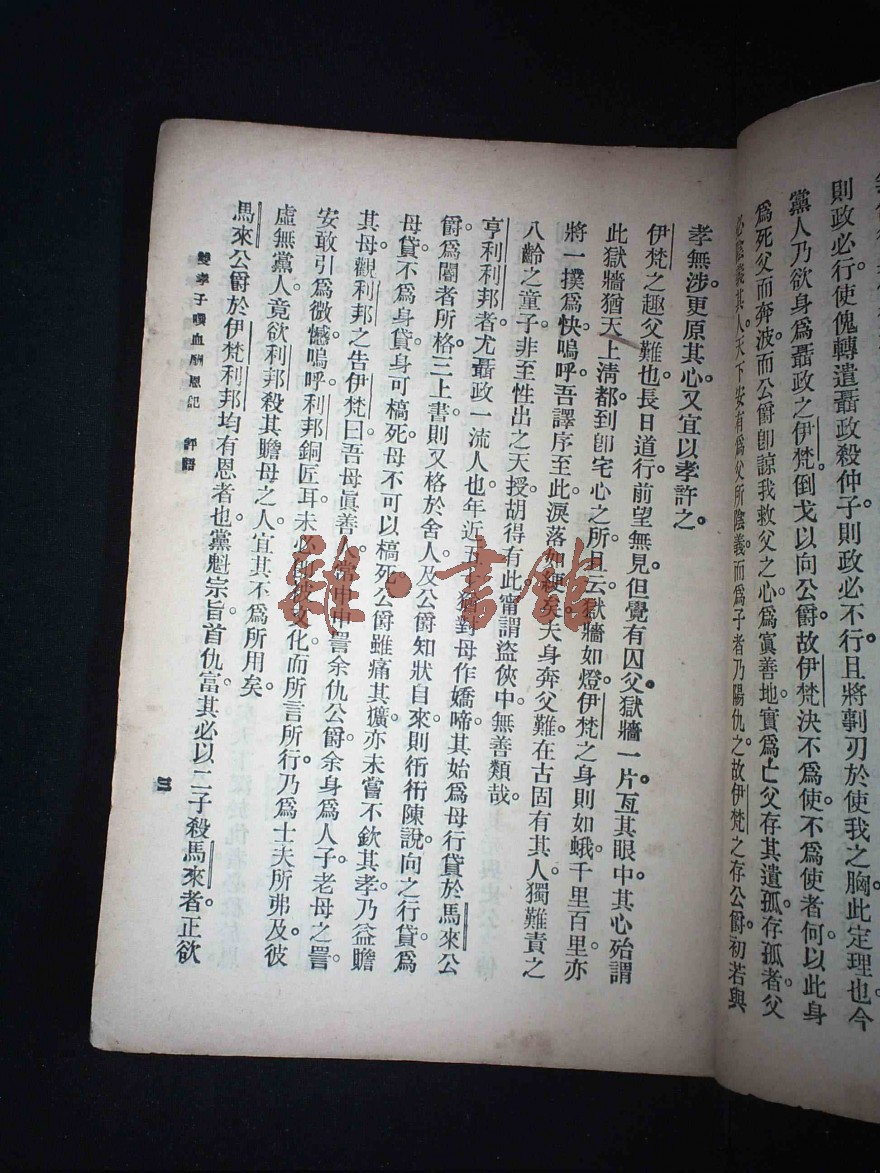 則政必行使傀轉遣聶政殺仲子則政必不行且將剚刃於使我之胸此定理也今
黨人乃欲身爲聶政之伊梵倒戈以向公爵故伊梵決不爲使不爲使者何以此身
爲死父而奔波而公爵卽諒我救父之心爲寘善地實爲亡父存其遺孤存孤者父
其人天下安有爲父所陰義而爲子者乃陽仇之故伊梵之存公爵初若與
孝無涉更原其心又宜以孝許之
伊梵之趣父難也長日道行前望無見但覺有囚父獄牆一片亙其眼中其心殆謂
此獄牆猶天上淸都到卽宅心之所且云獄牆如燈伊梵之身則如蛾千里百里亦
將一撲爲快嗚呼吾譯序至此淚落如矣夫身奔父難在古固有其人獨難責之
八齡之童子非至性出之天授胡得有此甯謂盜俠中無善類哉
亨利利邦者尤聶政一流人也年近五十猶對母作嬌啼其始爲母行貸於馬來公
爵爲閽者所格三上書則又格於舍人及公爵知狀自來則衎衎陳說向之行貸爲
母貸不爲身貸身可槁死母不可以槁死公爵雖痛其獷亦未嘗不欽其孝乃益贍
其母觀利邦之告伊梵曰吾母眞善人當申申詈余仇公爵余身爲人子老母之詈
安敢引爲微憾嗚呼利邦銅匠耳未必文化而所言所行乃爲士夫所弗及彼
虛無黨人竟欲利邦殺其贍母之人宜其不爲所用矣
馬來公爵於伊梵利邦均有恩者也黨魁宗旨首仇富其必以二子殺馬來者正欲
雙孝子噀血酬恩記 評語
三
雜·書館